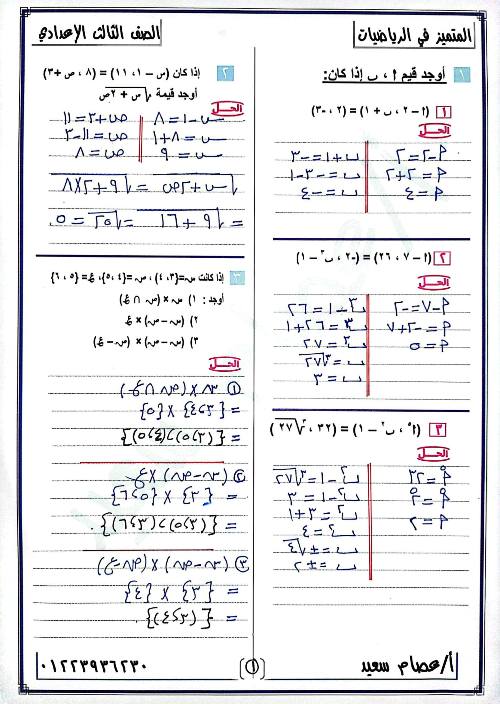 المتميز في الرياضيات
الصف الثالث الإعدادي
١ أوجد قيم أ ، ب إذا كان:
١ (أ – ٢ ، ب + ١) = (٢ ، -٣)
الحل
أ - ٢ = ٢
أ = ٢ + ٢
أ = ٤
ب + ١ = -٣
ب = -٣ - ١
ب = -٤
٢ (أ – ٧ ، ٢٦) = (-٢ ، ب٣ – ١)
الحل
أ - ٧ = -٢
أ = -٢ + ٧
أ = ٥
ب٣ - ١ = ٢٦
ب٣ = ٢٦ + ١
ب٣ = ٢٧
ب = ٣√٢٧
ب = ٣
٣ (أ٥ ، ب٢ – ١) = (٣٢ ، ٣√٢٧)
الحل
أ٥ = ٣٢
أ٥ = ٢٥
أ = ٢
ب٢ - ١ = ٣√٢٧
ب٢ - ١ = ٣
ب٢ = ٣ + ١
ب٢ = ٤
ب = ±√٤
ب = ±٢
٢ إذا كان (س – ١ ، ١١) = (٨ ، ص + ٣)
أوجد قيمة √س + ٢ص
الحل
س - ١ = ٨
س = ٨ + ١
س = ٩
ص + ٣ = ١١
ص = ١١ - ٣
ص = ٨
√س + ٢ص = √٩ + ٢×٨
= √٩ + ١٦ = √٢٥ = ٥
٣ إذا كانت س = {٣، ٤} ، ص = {٤، ٥} ، ع = {٥ ، ٦}
أوجد : ١) س × (ص ∩ ع)
٢) (س – ص) × ع
٣) (س – ص) × (ص – ع)
الحل
① س × (ص ∩ ع)
= {٣، ٤} × {٥}
= {(٣، ٥)، (٤، ٥)}
② (س - ص) × ع
= {٣} × {٥، ٦}
= {(٣، ٥)، (٣، ٦)}.
③ (س - ص) × (ص - ع)
= {٣} × {٤}
= {(٣، ٤)}.
أ/عصام سعيد
(١)
٠١٢٢٣٩٣٦٢٣٠